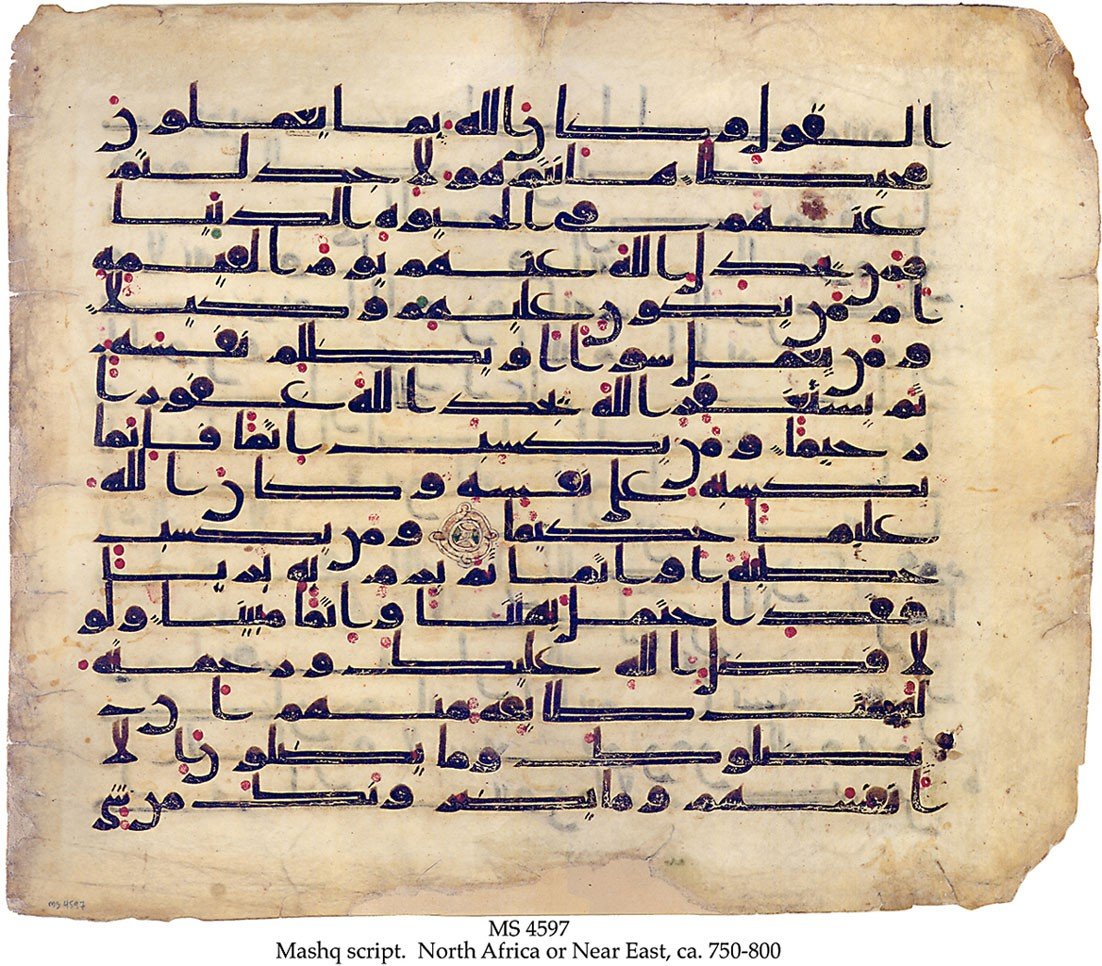 القول وكان الله بما يعملون
محيطا هانتم هولا جدلتم
عنهم في الحيوة الدنيا
فمن يجدل الله عنهم يوم القيمة
ام من يكون عليهم وكيلا
ومن يعمل سوا او يظلم نفسه
ثم يستغفر الله يجد الله غفورا
رحيما ومن يكسب اثما فانما
يكسبه على نفسه وكان الله
عليما حكيما ومن يكسب
خطية او اثما ثم يرم به بريا
فقد احتمل بهتنا واثما مبينا ولو
لا فضل الله عليك ورحمته
لهمت طايفة منهم ان
يضلوك وما يضلون الا
انفسهم وما يضرونك من شي
MS 4597
MS 4597
Mashq script. North Africa or Near East, ca. 750-800